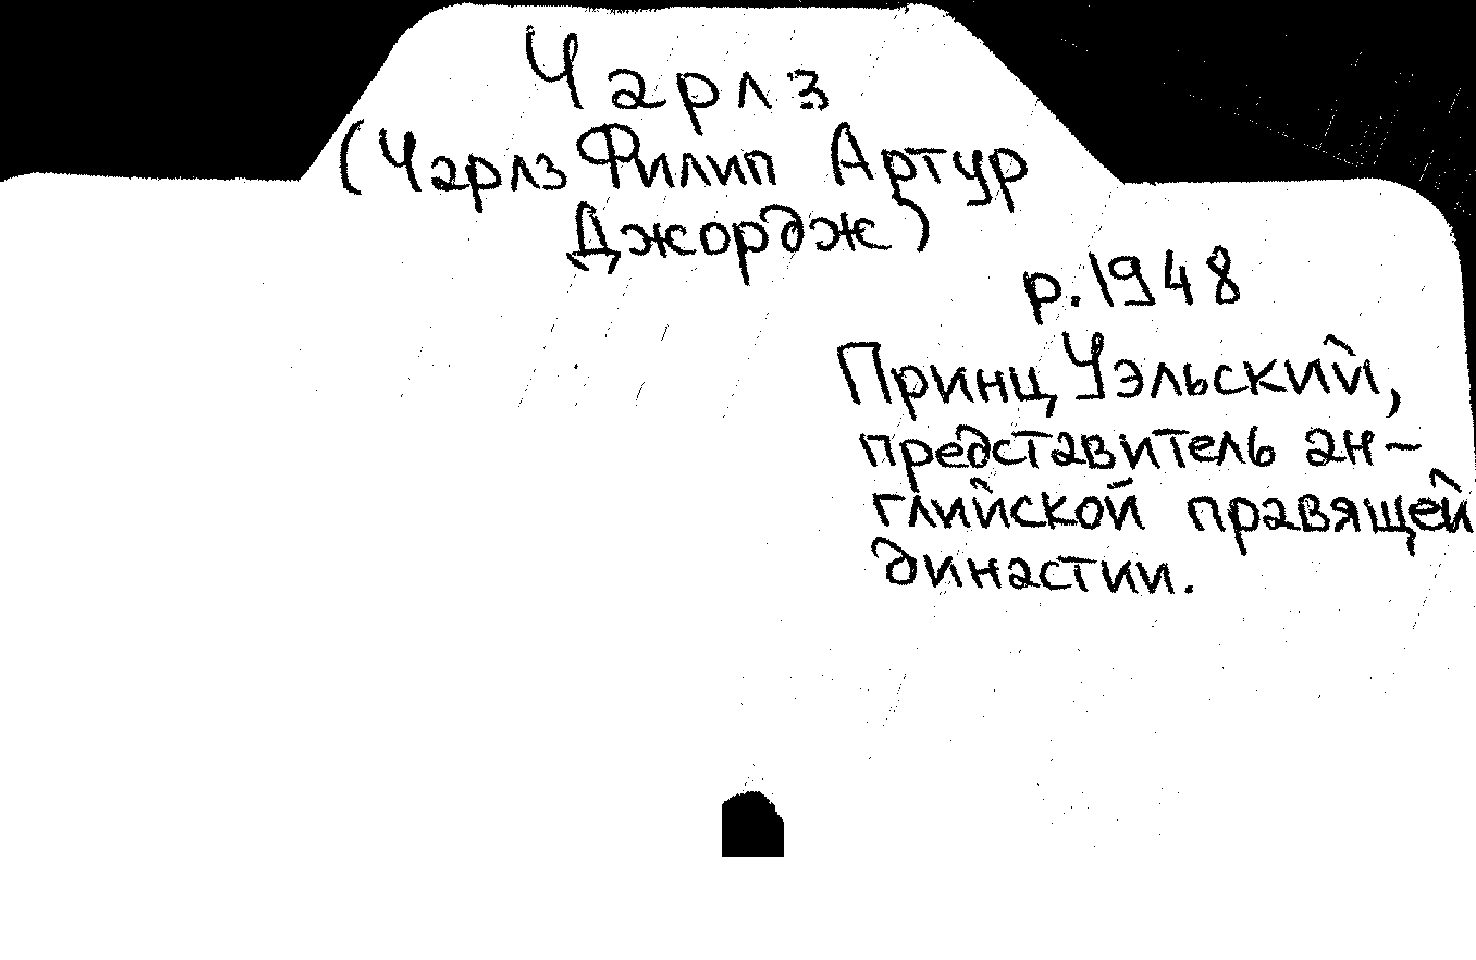 Чарлз
(Чарлз Филип Артур
Джордж)
р. 1948
Принц Уэльский,
представитель ан-
глийской правящей
династии.